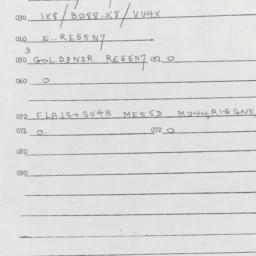 030 1X8/BO88:X8/VV4X
040 E..RE55N7
3
050 GOLD3N3R RE55N7 051 0
060 0
070 FLA15+SU4R ME55D MO44,R1GGNE,
071 0 072 0
080
090